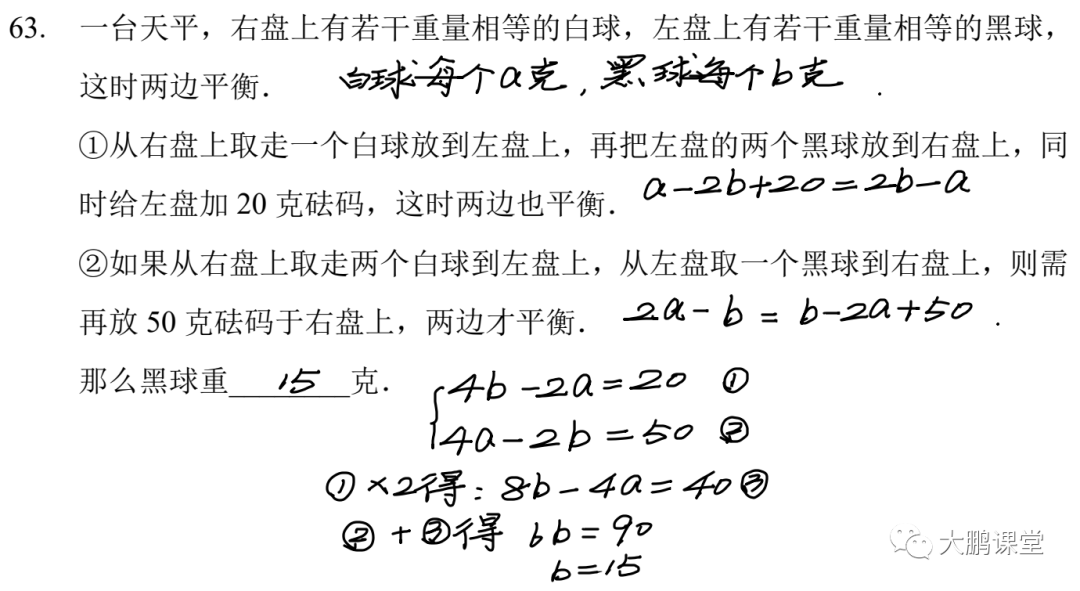 63. 一台天平，右盘上有若干重量相等的白球，左盘上有若干重量相等的黑球，
这时两边平衡． 白球每个a克，黑球每个b克 .
①从右盘上取走一个白球放到左盘上，再把左盘的两个黑球放到右盘上，同
时给左盘加 20 克砝码，这时两边也平衡． a-2b+20=2b-a
②如果从右盘上取走两个白球到左盘上，从左盘取一个黑球到右盘上，则需
再放 50 克砝码于右盘上，两边才平衡． 2a-b=b-2a+50 .
那么黑球重 15 克． 4b-2a=20 ①
4a-2b=50 ②
①×2得：8b-4a=40③
②+③得 6b=90
b=15
大鹏课堂